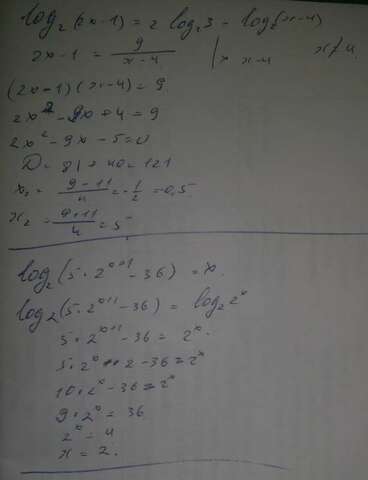 log₂(2x-1) = 2 log₂3 - log₂(x-4)
2x-1 = 9/(x-4) | × x-4 x≠4
(2x-1)(x-4) = 9
2x² - 9x + 4 = 9
2x² - 9x - 5 = 0
D = 81 + 40 = 121
x₁ = (9-11)/4 = -1/2 = -0,5
x₂ = (9+11)/4 = 5
log₂(5·2ˣ⁺¹ - 36) = x.
log₂(5·2ˣ⁺¹ - 36) = log₂2ˣ
5·2ˣ⁺¹ - 36 = 2ˣ.
5·2ˣ·2 - 36 = 2ˣ
10·2ˣ - 36 = 2ˣ
9·2ˣ = 36
2ˣ = 4
x = 2.